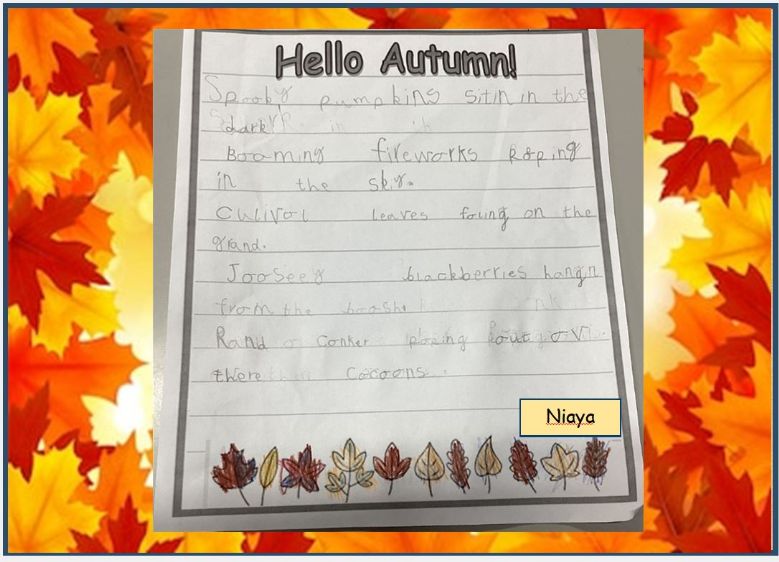 Hello Autumn!
Spooky pumpkins sitin in the
dark
Booming fireworks Poping
in the sky.
Culivol leaves foling on the
grand.
Jooseey blackberries hangn
from the booshi
Rand conker poping out ov
there cocoons.
Niaya